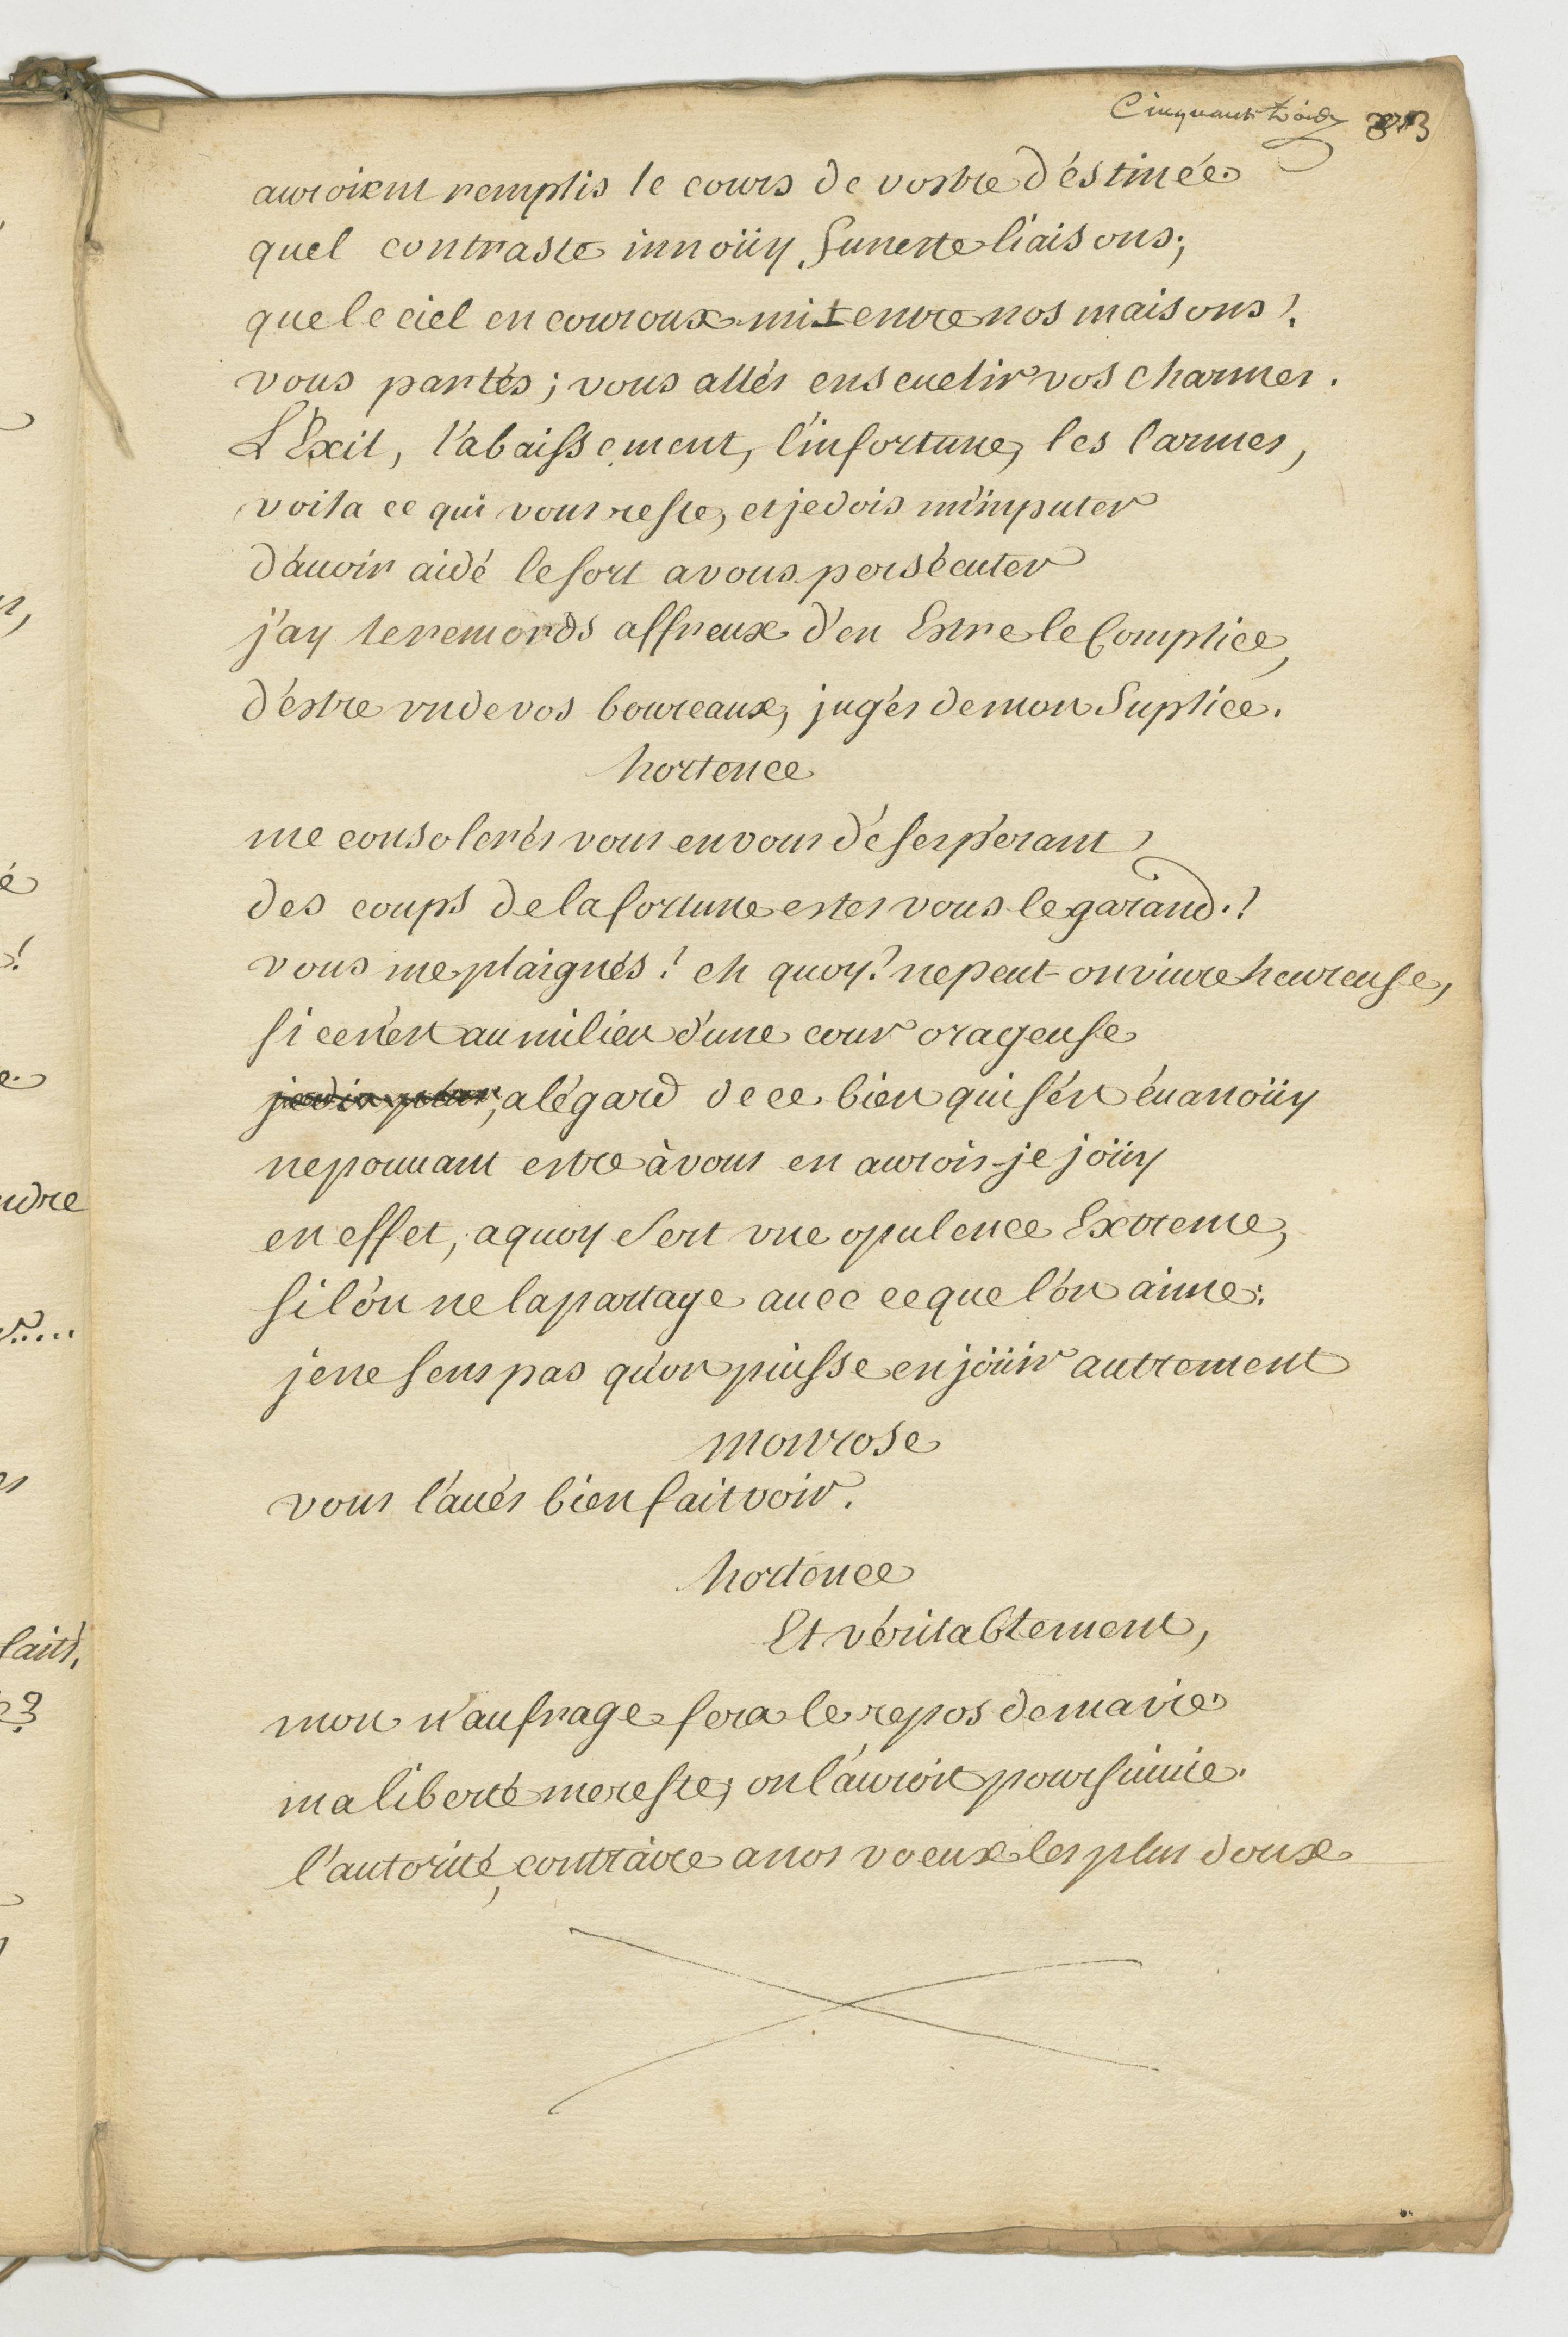 Cinquante trois 53
auroient remplis le cours de vostre déstinée.
quel contraste innoüy, funeste liaisons;
que le ciel en couroux mit entre nos maisons?
vous partés; vous allés enseuelir vos charmes.
L'Exil, l'abaissement, l'infortune, les larmes,
voila ce qui vous reste, et je dois m'imputer
d'auoir aidé le sort a vous persécuter
j'ay le remords affreux d'en Estre le Complice,
d'éstre vn de vos boureaux, jugés de mon Suplice.
hortence
me consolerés vous en vous désespérant?
des coups de la fortune estes vous le garand.?
vous me plaignés! eh quoy? ne peut-on viure heureuse,
si ce n'est au milieu d'une cour orageuse
a l'égard de ce bien qui s'ést éuanoüy
ne pouuant estre à vous en aurois-je joüy
en effet, a quoy sert vne opulence Extreme,
si l'ón ne la partage auec ce que l'ón aime:
je ne sens pas qu'on puisse en joüir autrement
monrose
vous l'aués bien fait voir.
hortence
Et véritablement,
mon naufrage sera le repos de ma vie
ma liberté me reste; on l'auroit poursuiuie.
l'autorité, contraire a nos voeux les plus doux
é
!
ndre
....
laits,
?